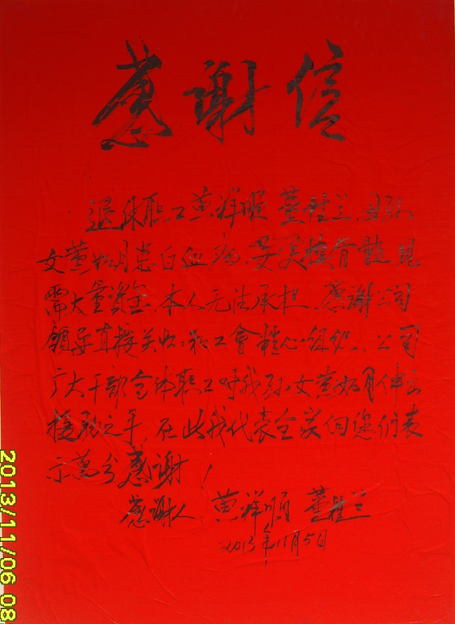 感谢信
退休职工黄祥顺 董桂兰 因孙
女黄如月患白血病 要美植骨髓 急
需大量资金 本人无法承担 感谢公司
领导直接关心 和工會精心组织 公司
广大干部全体职工对我孙女黄如月伸出
援助之手 在此我代表全家向您们表
示万分感谢！
感谢人 黄祥顺 董桂兰
2013年11月5日
2013/11/06 08